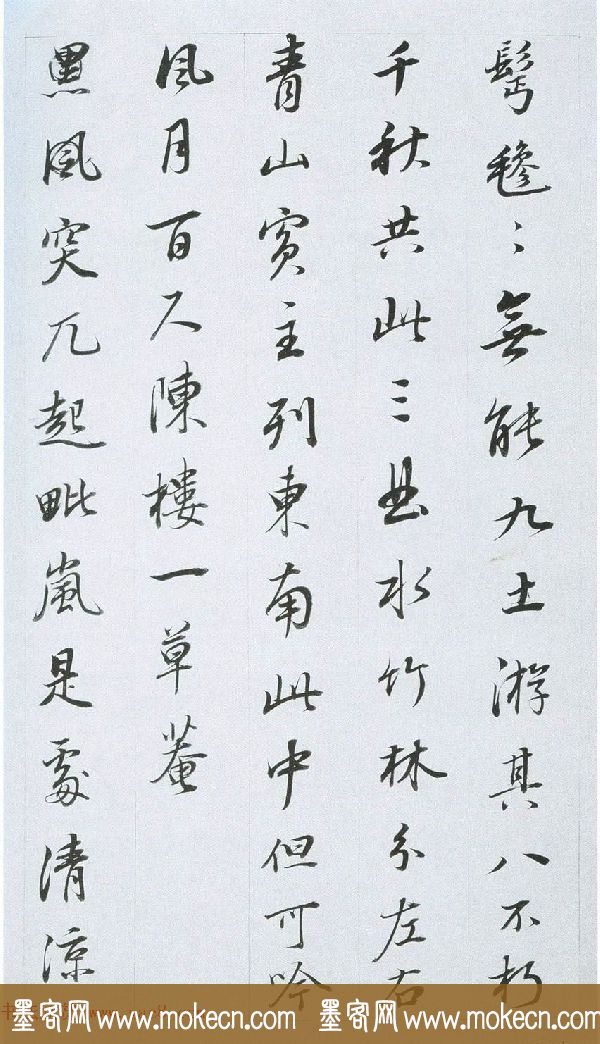 髩毿々無能九土游其八不朽
千秋共此三曲水竹林分左右
青山賓主列東南此中但可吟
風月百尺陳樓一草菴
黑風突兀起毗嵐是處清涼
墨客网 www.mokecn.com 墨客网 www.mokecn.com